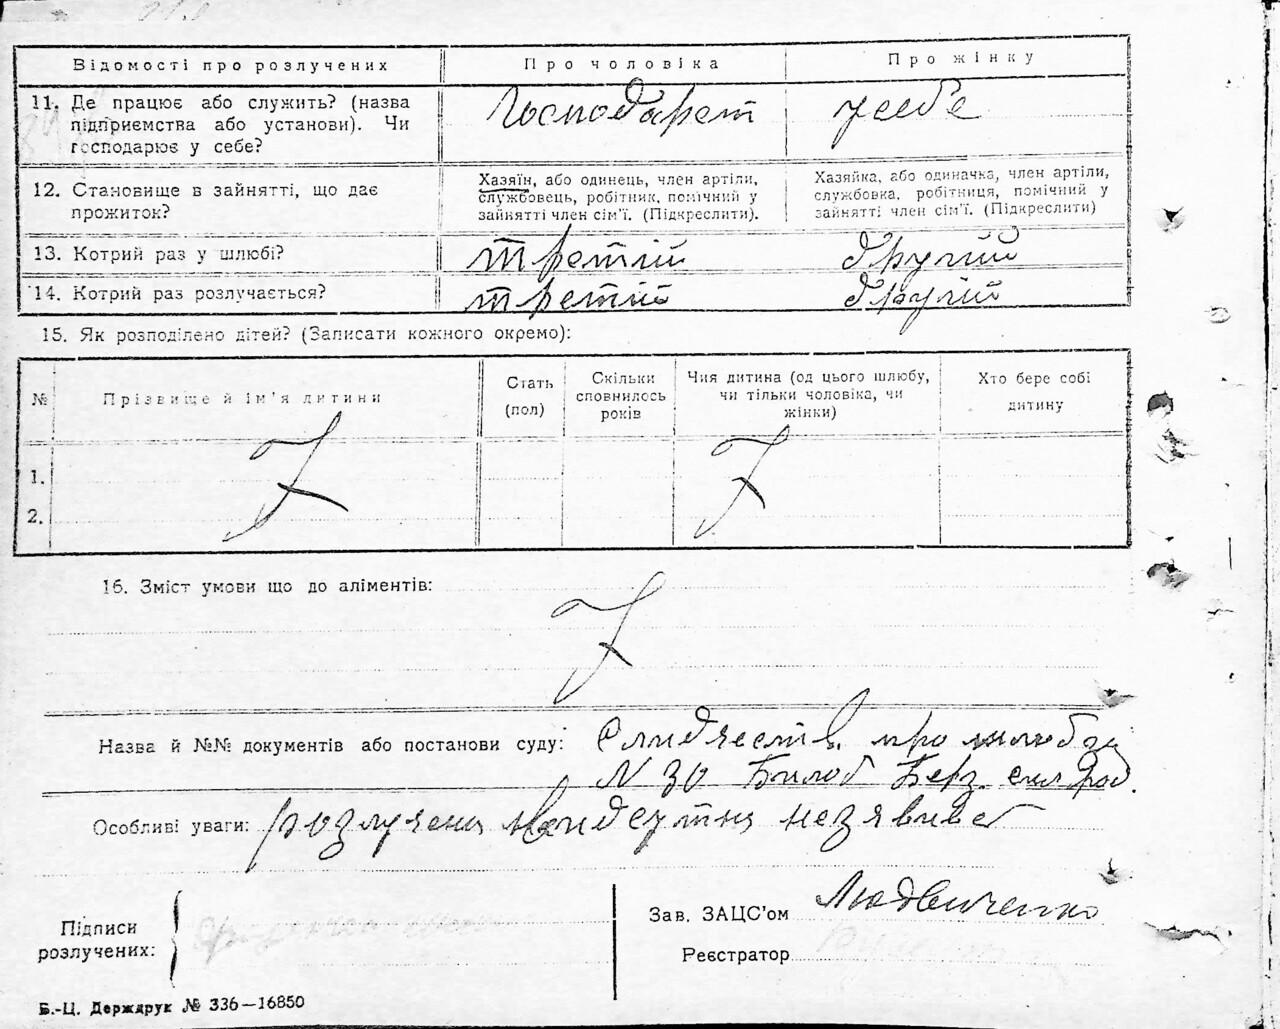 Відомості про розлучених
Про чоловіка
Про жінку
11. Де працює або служить? (назва
підприємства або установи). Чи
господарює у себе?
Господарет
усебе
12. Становище в зайнятті, що дає
прожиток?
Хазяїн, або одинець, член артіли,
службовець, робітник, помічний у
зайнятті член сім'ї. (Підкреслити).
Хазяйка, або одиначка, член артіли,
службовка, робітниця, помічний у
зайнятті член сім'ї. (Підкреслити)
13. Котрий раз у шлюбі?
третій
другий
14. Котрий раз розлучається?
третій
другий
15. Як розподілено дітей? (Записати кожного окремо):
№
Прізвище й ім'я дитини
Стать
(пол)
Скільки
сповнилось
років
Чия дитина (од цього шлюбу,
чи тільки чоловіка, чи
жінки)
Хто бере собі
дитину
1.
2.
16. Зміст умови що до аліментів:
Назва й №№ документів або постанови суду:
про
N 30 Билоб Берз
Особливі уваги:
Підписи
розлучених:
Зав. ЗАЦС'ом Людвиченко
Реєстратор
Б.-Ц. Держдрук № 336—16850